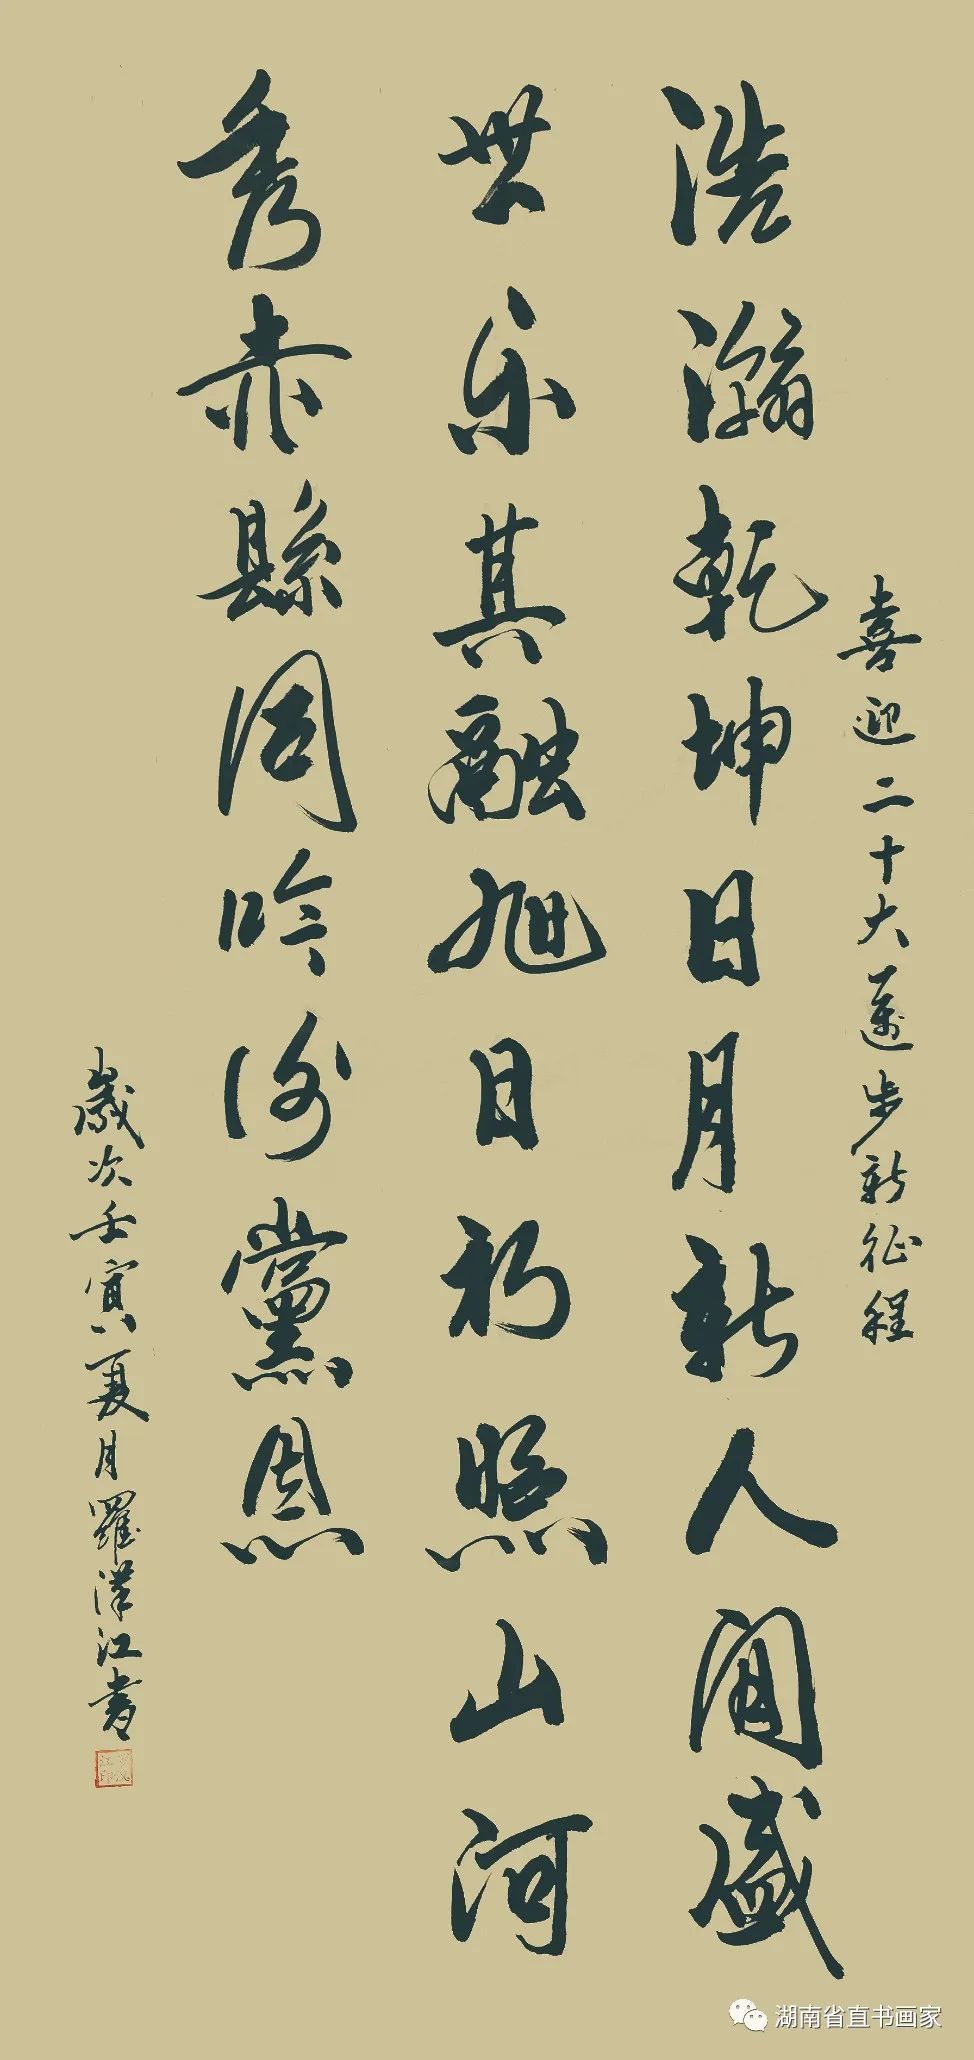 喜迎二十大邁步新征程
浩瀚乾坤日月新人間盛
世乐其融旭日初照山河
秀赤縣同吟谢黨恩
歲次壬寅夏月羅漢江書
湖南省直书画家